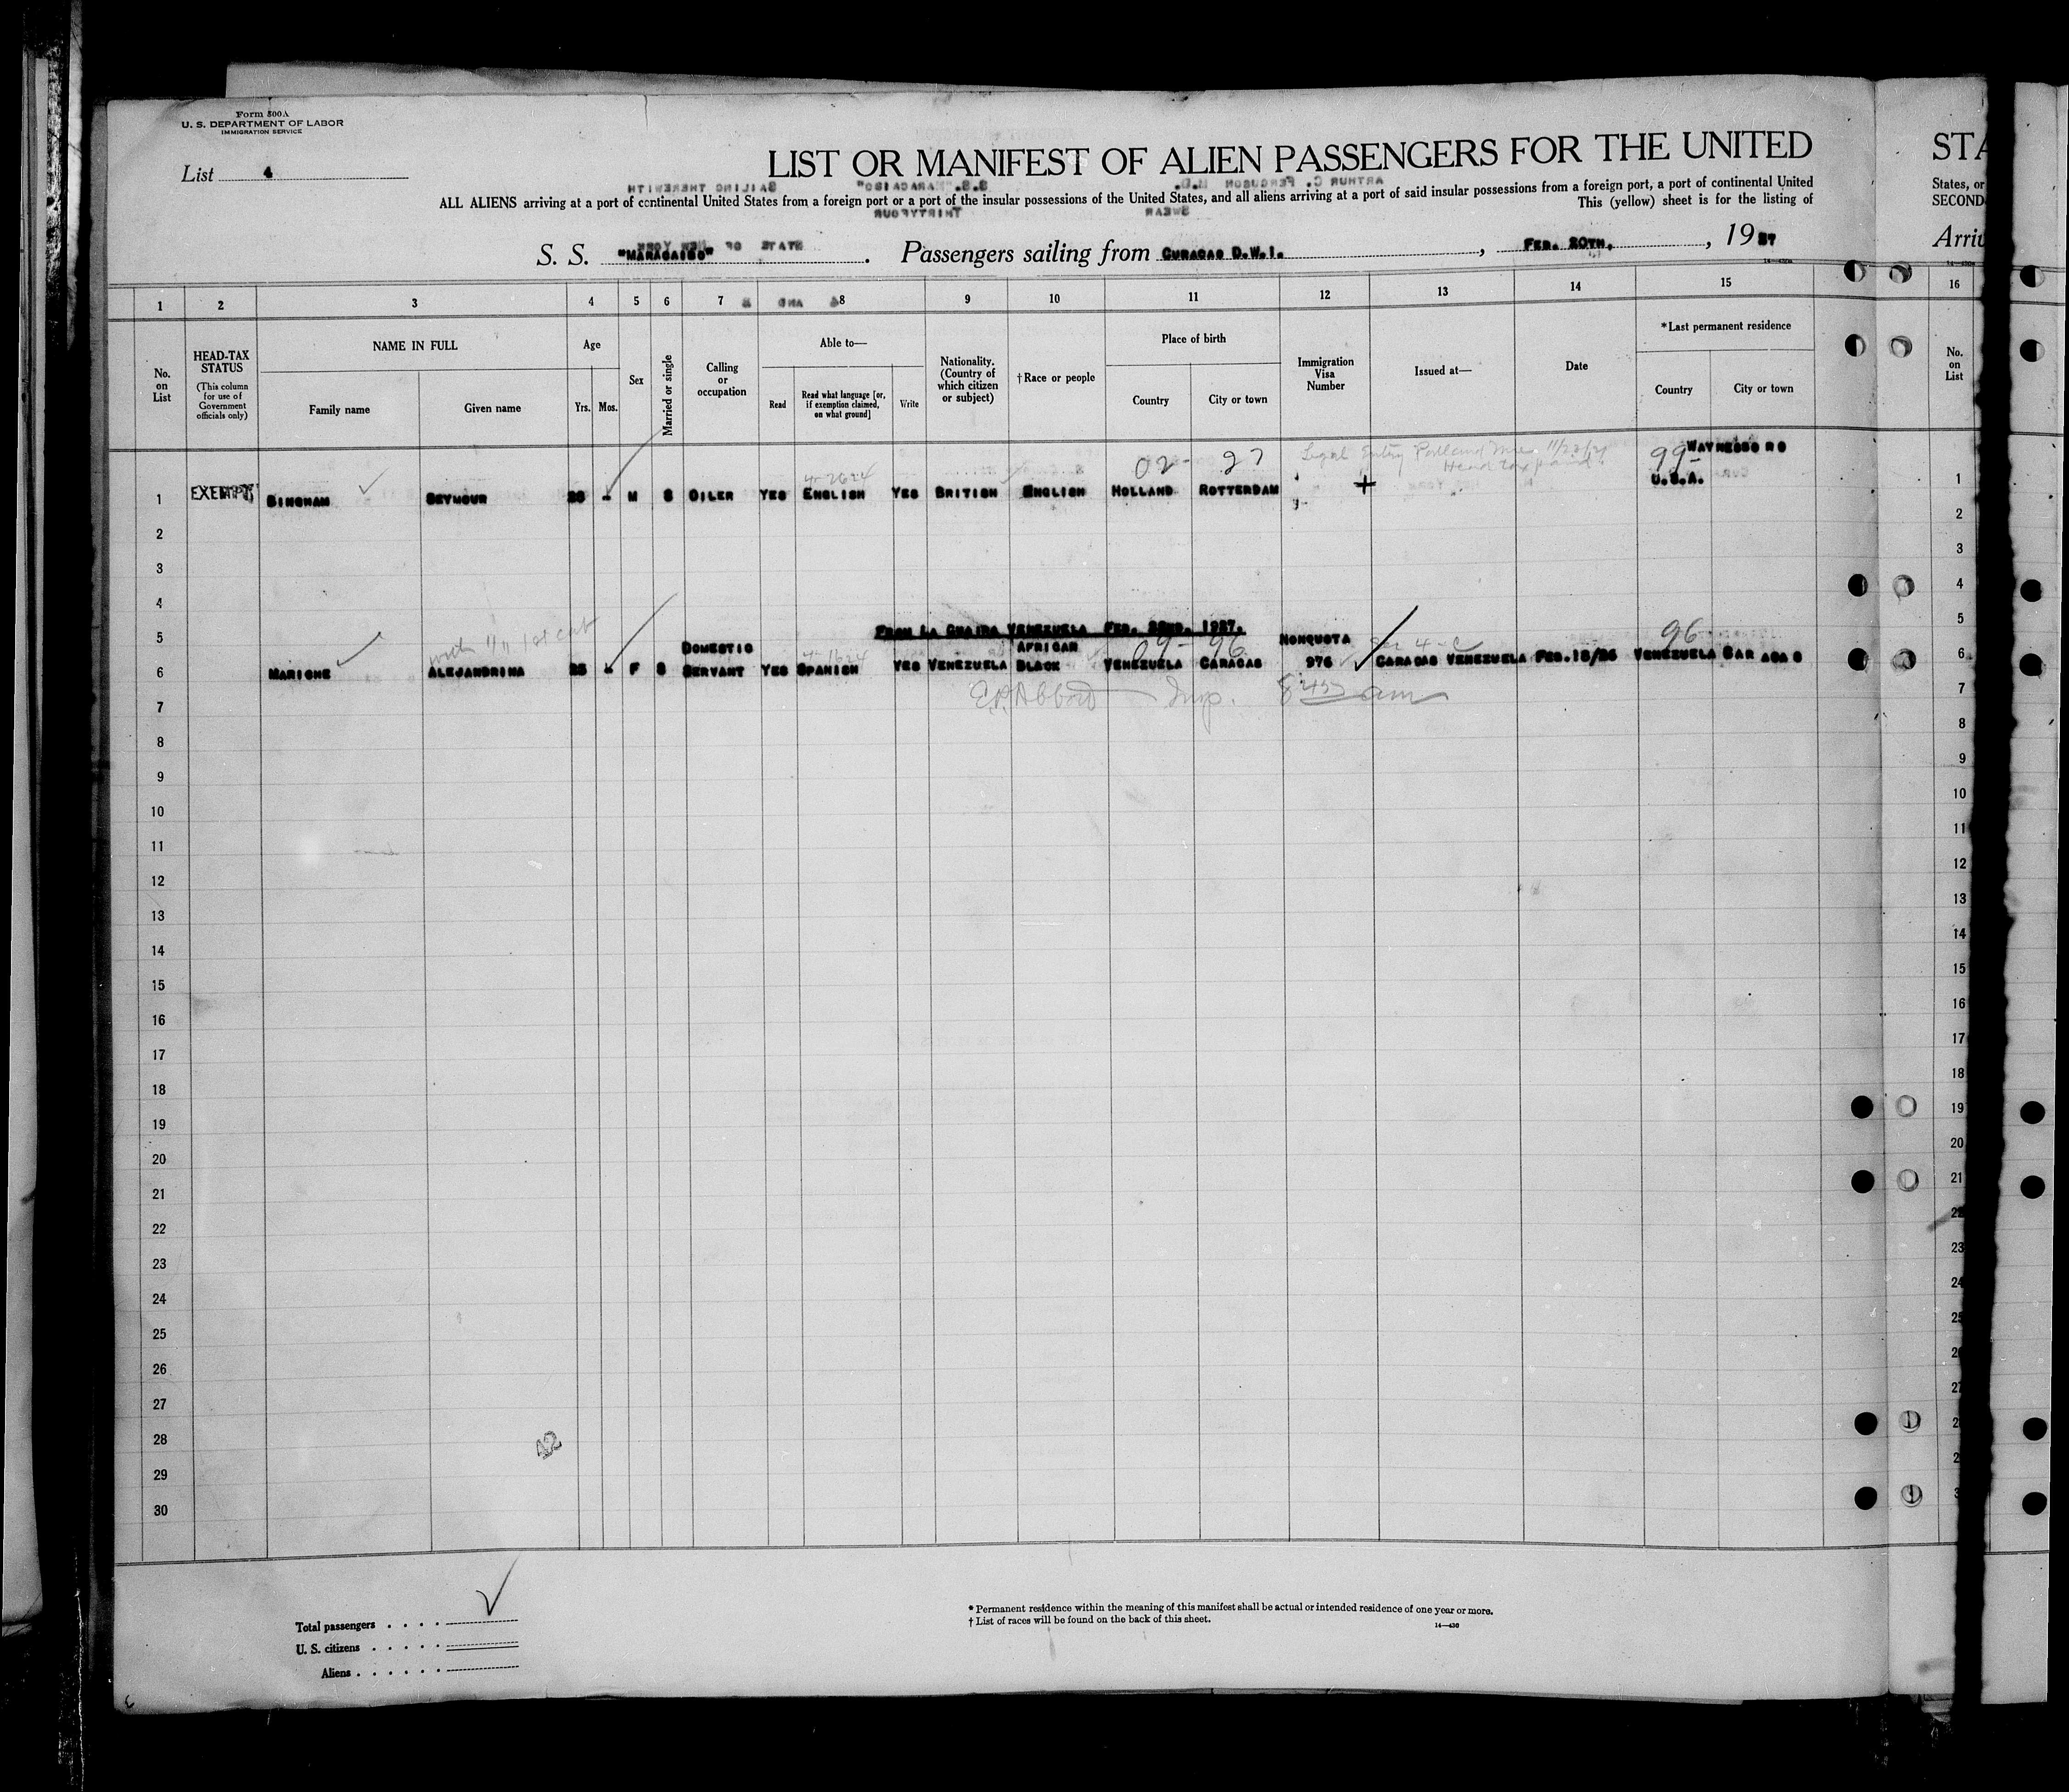 Form 500A
U. S. DEPARTMENT OF LABOR
IMMIGRATION SERVICE
List 4
LIST OR MANIFEST OF ALIEN PASSENGERS FOR THE UNITED
ALL ALIENS arriving at a port of continental United States from a foreign port or a port of the insular possessions of the United States, and all aliens arriving at a port of said insular possessions from a foreign port, a port of continental United
This (yellow) sheet is for the listing of
S. S. "MARACAIBO". Passengers sailing from CURACAO D.W.I., FEB. 20TH., 1927
STA
States, or
SECOND-
Arriv
1 2 3 4 5 6 7 8 9 10 11 12 13 14 15 16
No. on List
HEAD-TAX STATUS (This column for use of Government officials only)
NAME IN FULL
Family name
Given name
Age
Yrs. Mos.
Sex
Married or single
Calling or occupation
Able to—
Read
Read what language [or, if exemption claimed, on what ground]
Write
Nationality. (Country of which citizen or subject)
† Race or people
Place of birth
Country
City or town
Immigration Visa Number
Issued at—
Date
* Last permanent residence
Country
City or town
No. on List
02- 27 Legal Entry Portland Me. 99- WAYNESBORO
1 EXEMPT BINGHAM SEYMOUR 26 - M S OILER YES ENGLISH YES BRITISH ENGLISH HOLLAND ROTTERDAM + U.S.A. 1
2 2
3 3
4 4
5 FROM LA GUAIRA VENEZUELA FEB. 22ND. 1927. 5
DOMESTIC AFRICAN 09- 96 NONQUOTA 96
6 MARICHE ALEJANDRINA 25 - F S SERVANT YES SPANISH YES VENEZUELA BLACK VENEZUELA CARACAS 976 CARACAS VENEZUELA FEB.18/26 VENEZUELA CARACAS 6
7 Insp. 8:45 am 7
8 8
9 9
10 10
11 11
12 12
13 13
14 14
15 15
16 16
17 17
18 18
19 19
20 20
21 21
22 22
23 23
24 24
25 25
26
27
28
29
30
42
Total passengers
U. S. citizens
Aliens
* Permanent residence within the meaning of this manifest shall be actual or intended residence of one year or more.
† List of races will be found on the back of this sheet.
14—430